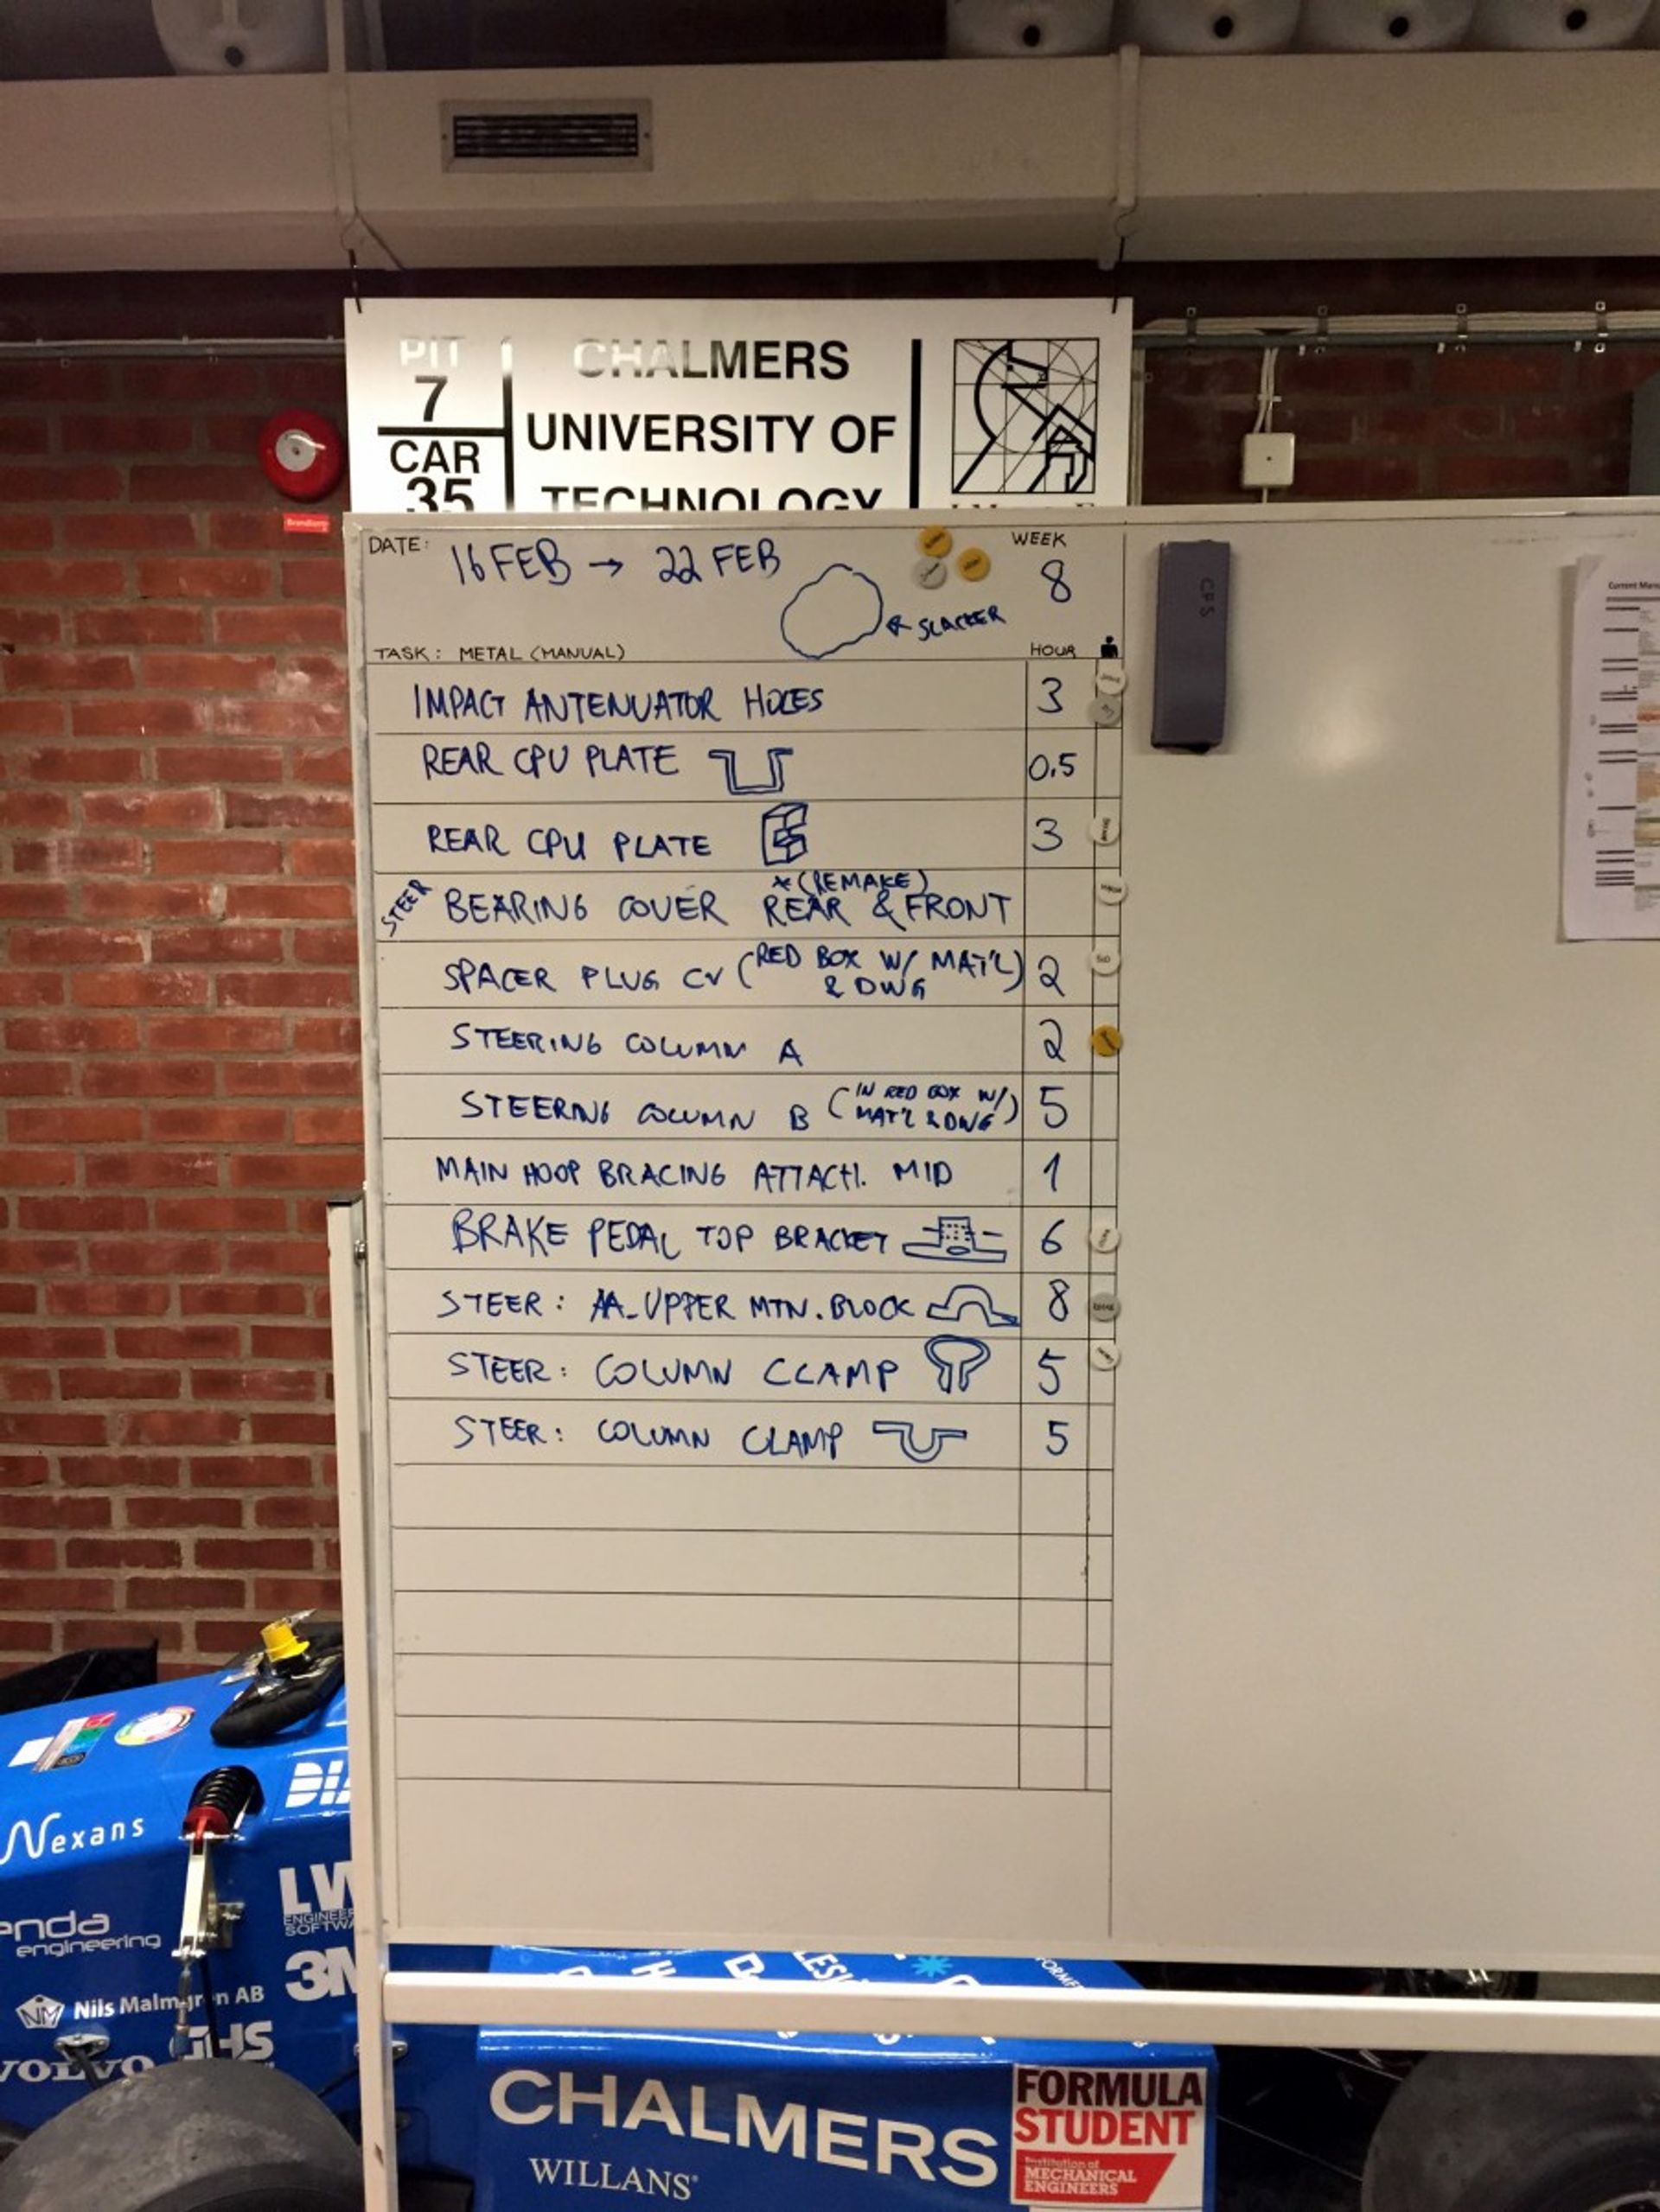 PIT
7
CAR
35
CHALMERS
UNIVERSITY OF
TECHNOLOGY
Brandlarm
DATE: 16 FEB → 22 FEB
WEEK
8
SLACKER
TASK: METAL (MANUAL)
HOUR
IMPACT ANTENUATOR HOLES 3
REAR CPU PLATE 0.5
REAR CPU PLATE 3
STEER BEARING COVER *(REMAKE) REAR & FRONT
SPACER PLUG CV (RED BOX W/ MAT'L & DWG) 2
STEERING COLUMN A 2
STEERING COLUMN B (IN RED BOX W/ MAT'L & DWG) 5
MAIN HOOP BRACING ATTACH. MID 1
BRAKE PEDAL TOP BRACKET 6
STEER: AA_UPPER MTN. BLOCK 8
STEER: COLUMN CLAMP 5
STEER: COLUMN CLAMP 5
CFS
Nexans
LW
ENGINEER
SOFTWA
engineering
3M
Nils Malmgren AB
GHS
VOLVO
CHALMERS
WILLANS
FORMULA
STUDENT
Institution of
MECHANICAL
ENGINEERS